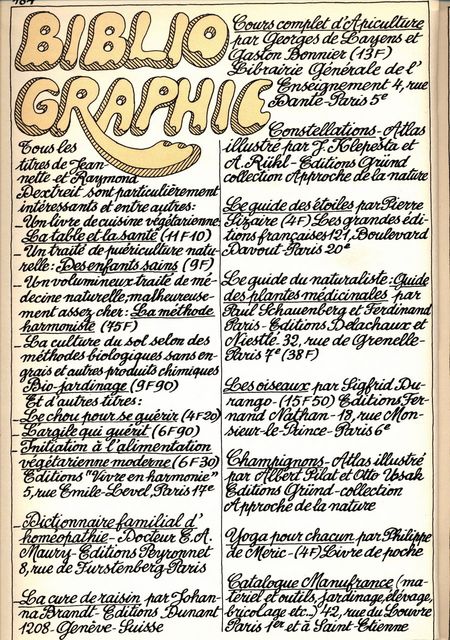 184
BIBLIO
GRAPHIE
Tous les
titres de Jean-
nette et Raymond
Dextreit sont particulièrement
intéressants et entre autres:
_ Un livre de cuisine végétarienne:
La table et la santé (11F10)
_ Un traité de puériculture natu-
relle: Des enfants sains (9F)
_ Un volumineux traité de mé-
decine naturelle, malheureuse-
ment assez cher: La méthode
harmoniste (75F)
_ La culture du sol selon des
méthodes biologiques sans en-
grais et autres produits chimiques
Bio-jardinage (9F90)
Et d'autres titres:
_ Le chou pour se guérir (4F20)
_ L'argile qui guérit (6F90)
_ Initiation à l'alimentation
végétarienne moderne (6F30)
Editions "Vivre en harmonie"
5, rue Emile-Level, Paris 17e
_ Dictionnaire familial d'
homéopathie - Docteur E.A.
Maury - Editions Peyronnet
8, rue de Furstenberg-Paris
La cure de raisin par Johan-
na Brandt - Editions Dunant
1208 - Genève - Suisse
Cours complet d'Apiculture
par Georges de Layens et
Gaston Bonnier (13F)
Librairie Générale de l'
Enseignement 4, rue
Dante - Paris 5e
Constellations - Atlas
illustré par J. Klepesta et
A. Rükl - Editions Gründ
collection Approche de la nature
Le guide des étoiles par Pierre
Sizaire (4F) Les grandes édi-
tions françaises 121, Boulevard
Davout - Paris 20e
Le guide du naturaliste: Guide
des plantes médicinales par
Paul Schauenberg et Ferdinand
Paris - Editions Delachaux et
Niestlé. 32, rue de Grenelle-
Paris 7e (38F)
Les oiseaux par Sigfrid Du-
rango - (15F50) Editions Fer-
nand Nathan - 18, rue Mon-
sieur-le-Prince - Paris 6e
Champignons - Atlas illustré
par Albert Pilat et Otto Usak
Editions Gründ - collection
Approche de la nature
Yoga pour chacun par Philippe
de Méric - (4F) Livre de poche
Catalogue Manufrance (ma-
tériel et outils, jardinage, élevage,
bricolage etc...) 42, rue du Louvre
Paris 1er et à Saint-Etienne